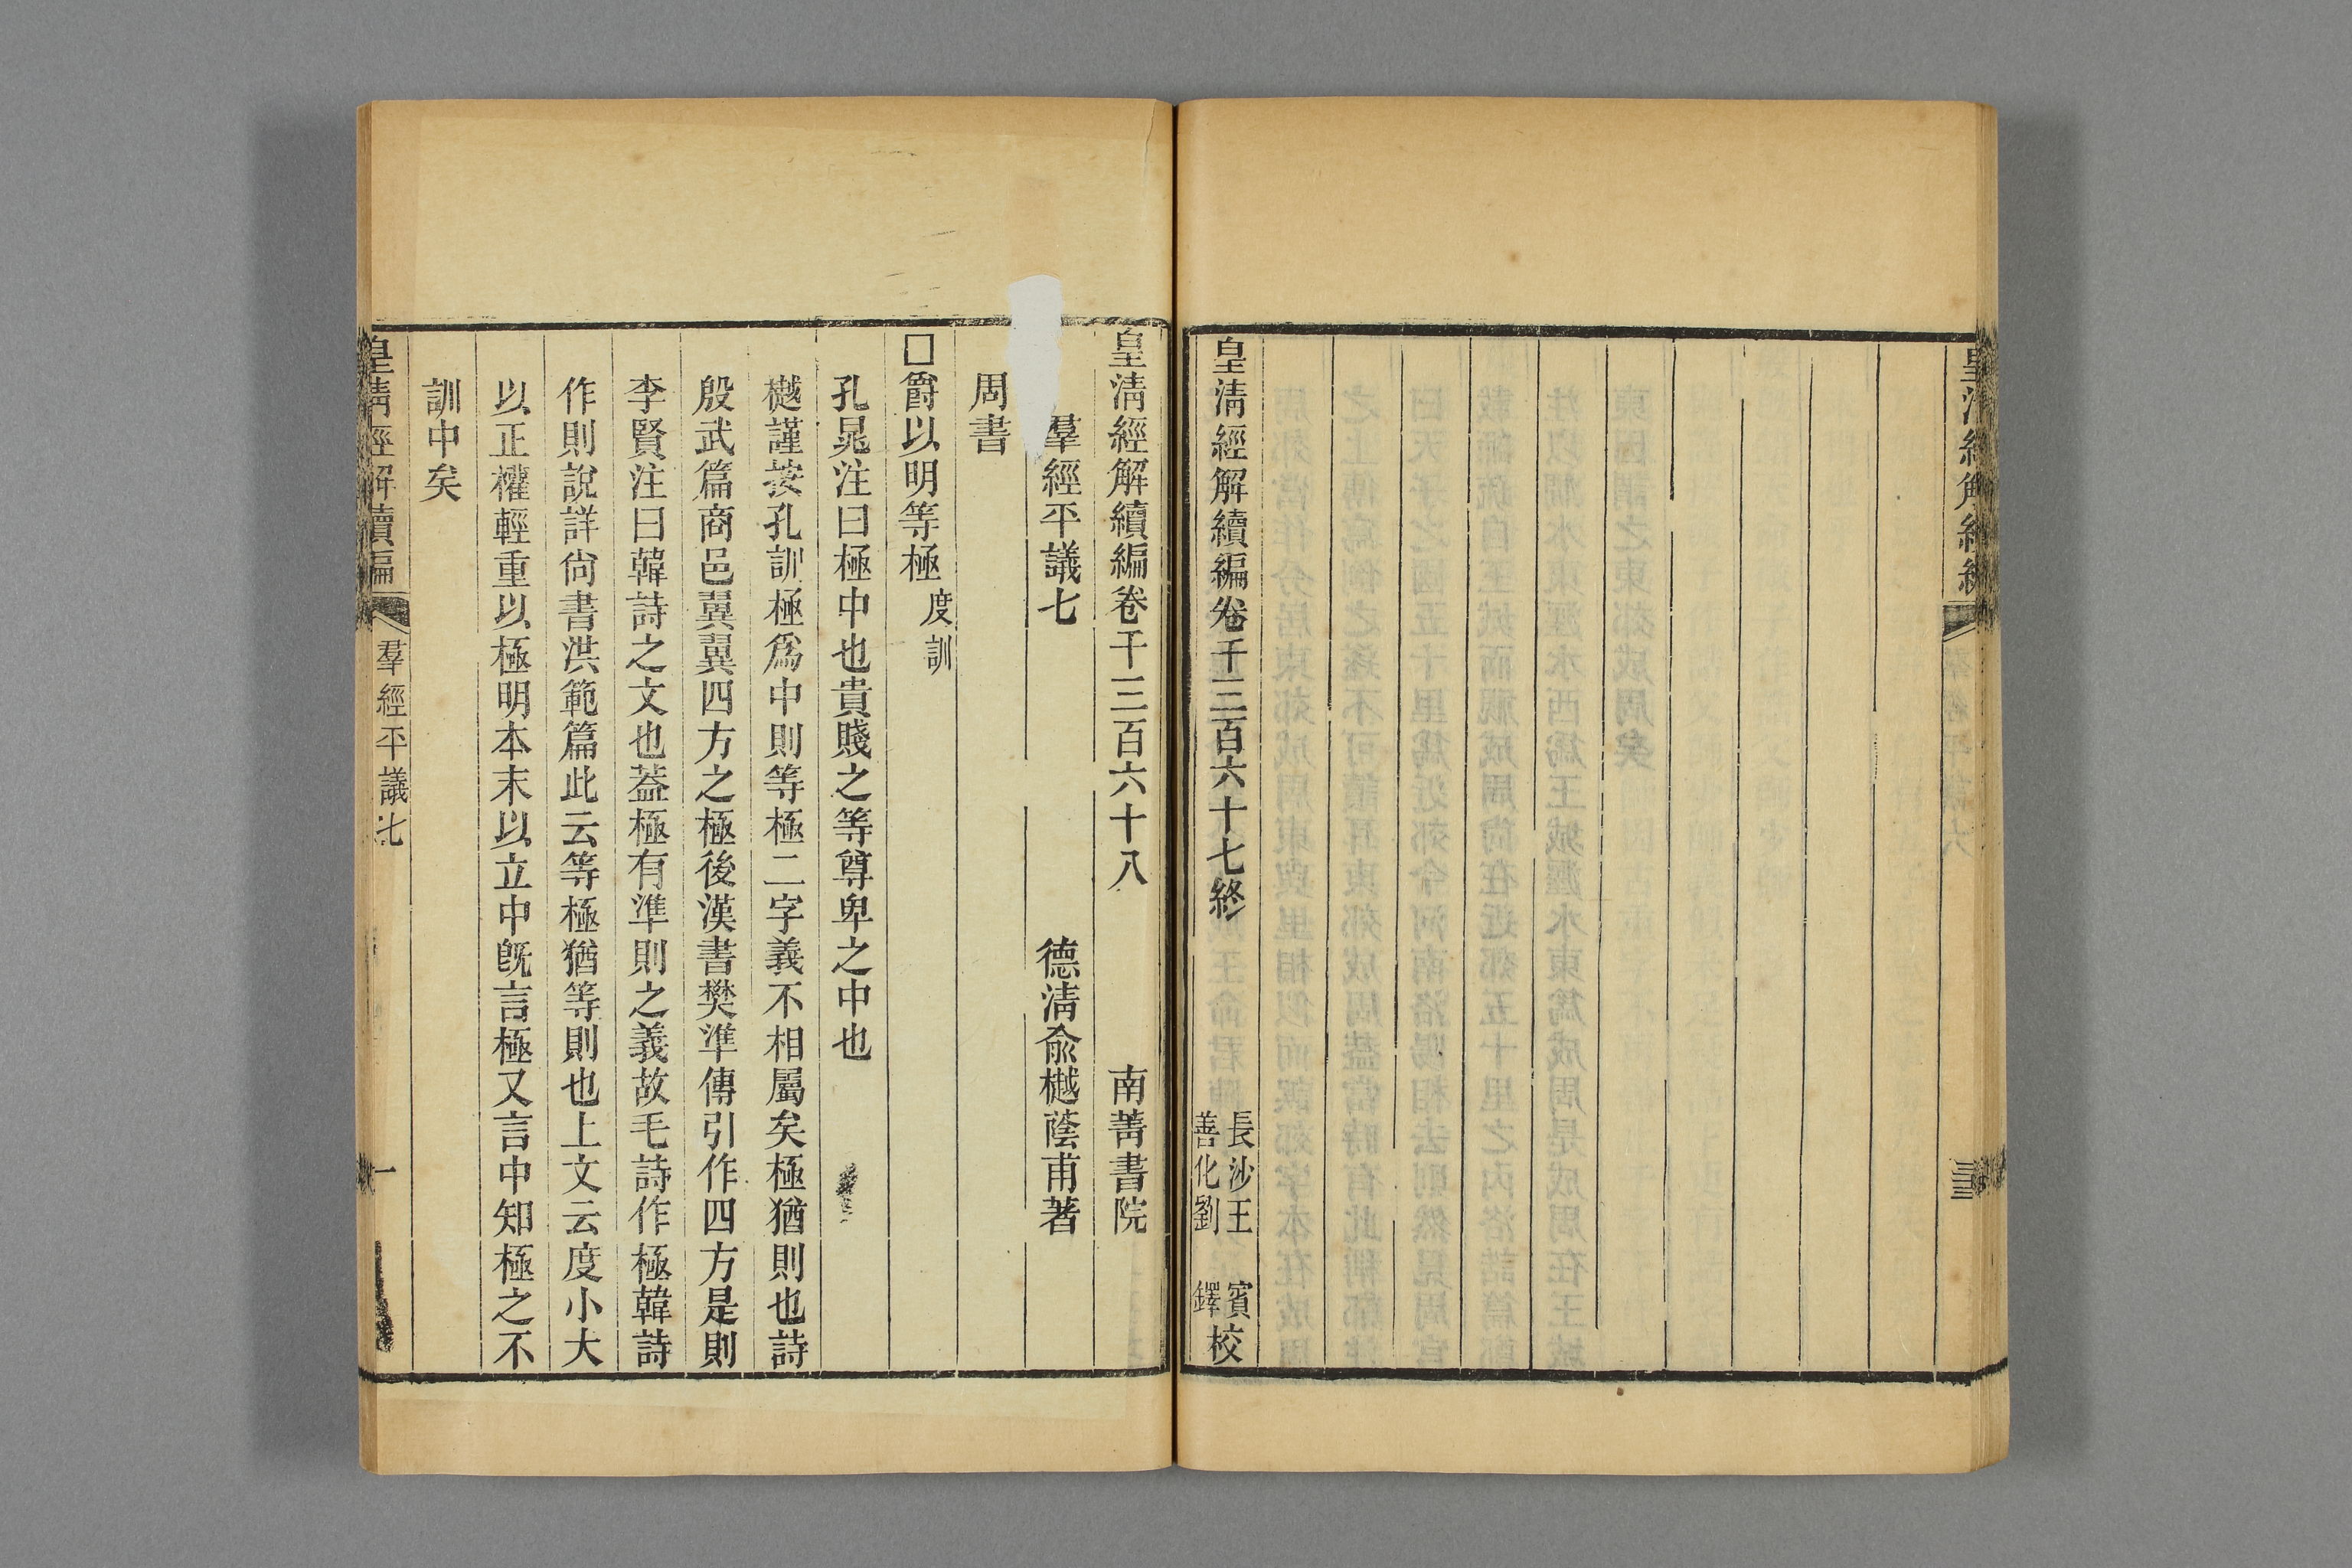 皇清經解續編
皇清經解續編卷千三百六十七終
長沙王賓
善化劉鐸
校
皇清經解續編卷千三百六十八
南菁書院
羣經平議七
德清俞樾蔭甫著
周書
□爵以明等極度訓
孔晁注曰極中也貴賤之等尊卑之中也
樾謹按孔訓極爲中則等極二字義不相屬矣極猶則也詩
殷武篇商邑翼翼四方之極後漢書樊準傳引作四方是則
李賢注曰韓詩之文也葢極有準則之義故毛詩作極韓詩
作則說詳尙書洪範篇此云等極猶等則也上文云度小大
以正權輕重以極明本末以立中旣言極又言中知極之不
訓中矣
皇清經解續編
羣經平議七
一